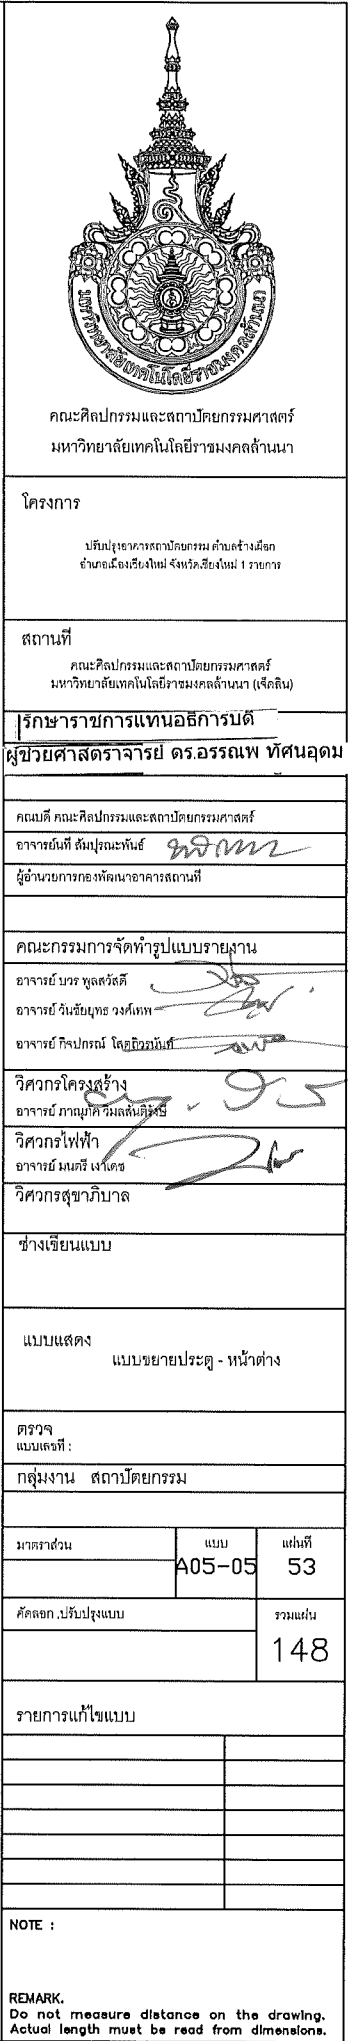 มหาวิทยาลัยเทคโนโลยีราชมงคลล้านนา
คณะศิลปกรรมและสถาปัตยกรรมศาสตร์
มหาวิทยาลัยเทคโนโลยีราชมงคลล้านนา
โครงการ
ปรับปรุงอาคารสถาปัตยกรรม ตำบลช้างเผือก
อำเภอเมืองเชียงใหม่ จังหวัดเชียงใหม่ 1 รายการ
สถานที่
คณะศิลปกรรมและสถาปัตยกรรมศาสตร์
มหาวิทยาลัยเทคโนโลยีราชมงคลล้านนา (เจ็ดลิน)
รักษาราชการแทนอธิการบดี
ผู้ช่วยศาสตราจารย์ ดร.อรรณพ ทัศนอุดม
คณบดี คณะศิลปกรรมและสถาปัตยกรรมศาสตร์
อาจารย์นที ลัมปุรณะพันธ์
ผู้อำนวยการกองพัฒนาอาคารสถานที่
คณะกรรมการจัดทำรูปแบบรายงาน
อาจารย์ บวร พูลสวัสดิ์
อาจารย์ วันชัยยุทธ วงศ์เทพ
อาจารย์ กิจปกรณ์
วิศวกรโครงสร้าง
อาจารย์ ภาณุภัค
วิศวกรไฟฟ้า
อาจารย์ มนตรี เงาเดช
วิศวกรสุขาภิบาล
ช่างเขียนแบบ
แบบแสดง
แบบขยายประตู - หน้าต่าง
ตรวจ
แบบเลขที่ :
กลุ่มงาน สถาปัตยกรรม
มาตราส่วน แบบ แผ่นที่
A05-05 53
คัดลอก ,ปรับปรุงแบบ รวมแผ่น
148
รายการแก้ไขแบบ
NOTE :
REMARK.
Do not measure distance on the drawing.
Actual length must be read from dimensions.